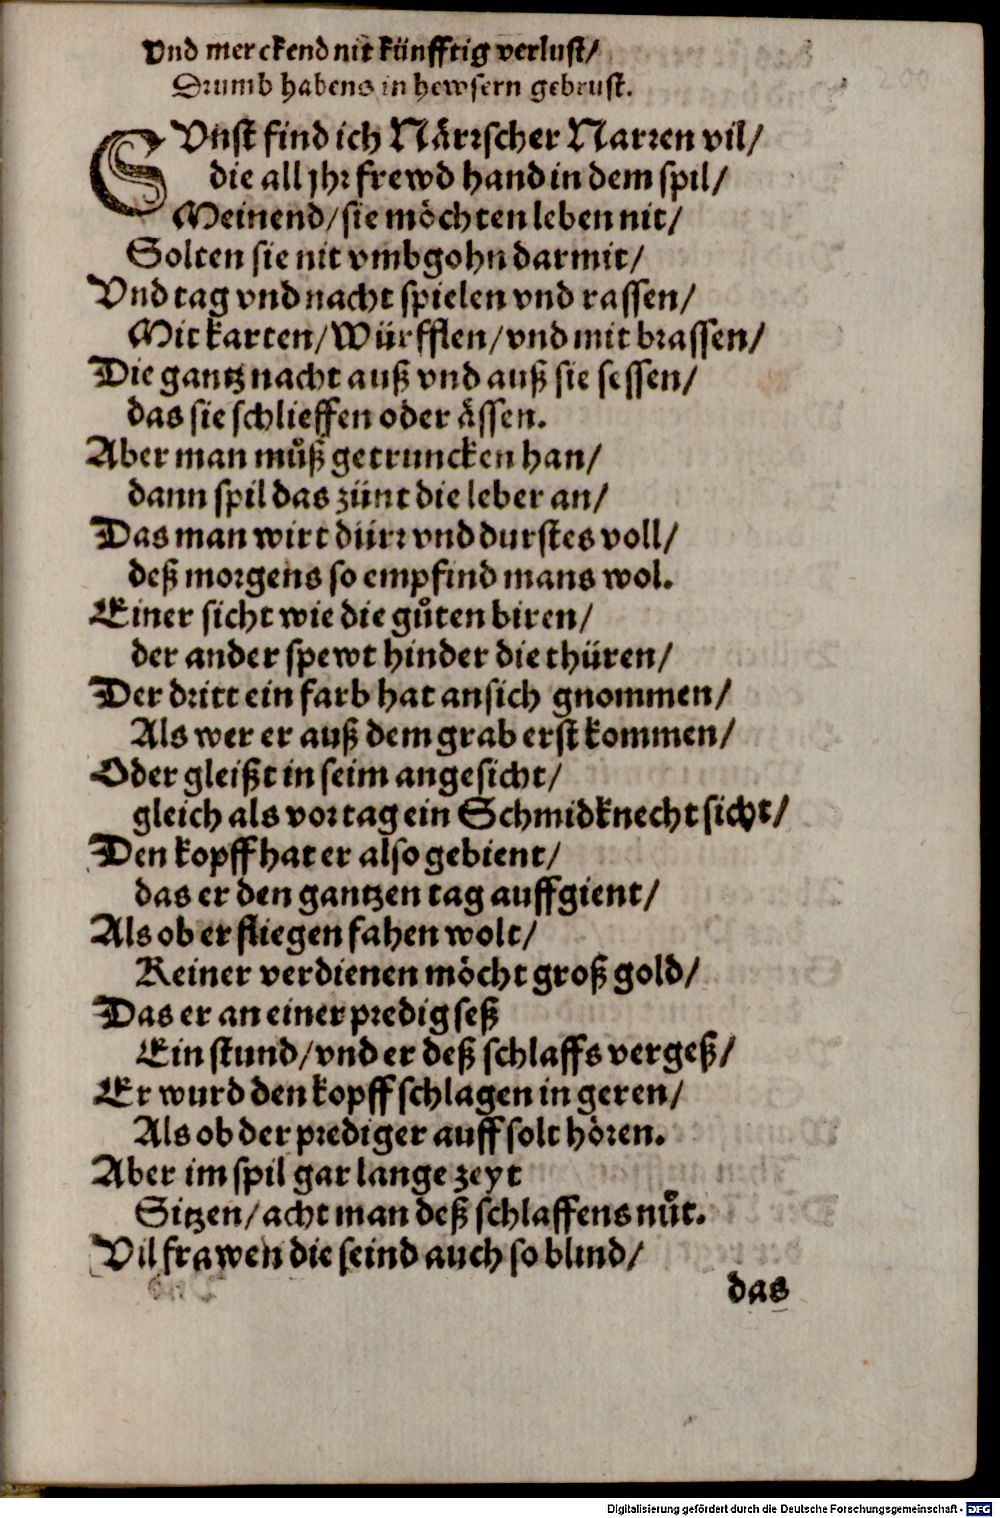 Vnd merckend nit künfftig verlust/
Drumb habens in hewsern gebrust.
SVnst find ich Närrscher Narren vil/
die all jhr frewd hand in dem spil/
Meinend/sie möchten leben nit/
Solten sie nit vmbgohn darmit/
Vnd tag vnd nacht spielen vnd rassen/
Mit karten/Würfflen/vnd mit brassen/
Die gantz nacht auß vnd auß sie sessen/
das sie schlieffen oder ässen.
Aber man můß getruncken han/
dann spil das zünt die leber an/
Das man wirt dürr vnd durstes voll/
deß morgens so empfind mans wol.
Einer sicht wie die gůten biren/
der ander spewt hinder die thüren/
Der dritt ein farb hat an sich gnommen/
Als wer er auß dem grab erst kommen/
Oder gleißt in seim angesicht/
gleich als vor tag ein Schmidknecht sicht/
Den kopff hat er also gebient/
das er den gantzen tag auffgient/
Als ob er fliegen fahen wolt/
Keiner verdienen möcht groß gold/
Das er an einer predig seß
Ein stund/vnd er deß schlaffs vergeß/
Er wurd den kopff schlagen in geren/
Als ob der prediger auff solt hören.
Aber im spil gar lange zeyt
Sitzen/acht man deß schlaffens nůt.
Vil frawen die seind auch so blind/
das
Digitalisierung gefördert durch die Deutsche Forschungsgemeinschaft - DFG